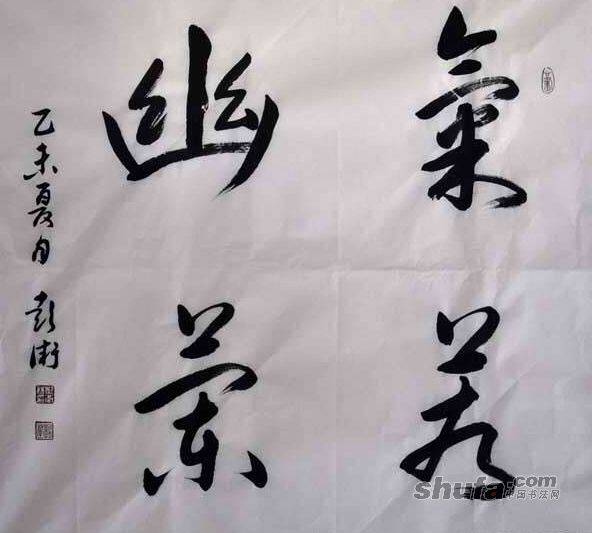 氣若
幽蘭
乙未夏月 彭衛
shufa.com
中国书法网